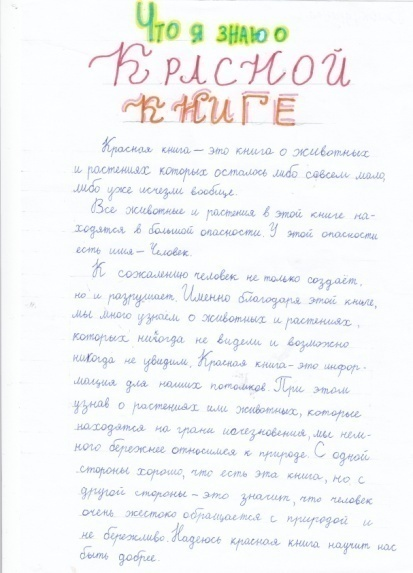 Что я знаю о
Красной
книге
Красная книга – это книга о животных
и растениях которых осталось либо совсем мало,
либо уже исчезли вообще.
Все животные и растения в этой книге на-
ходятся в большой опасности. У этой опасности
есть имя – Человек.
К сожалению человек не только создаёт,
но и разрушает. Именно благодаря этой книге,
мы много узнаем о животных и растениях,
которых никогда не видели и возможно
никогда не увидим. Красная книга – это инфор-
мация для наших потомков. При этом
узнав о растениях или животных, которые
находятся на грани исчезновения, мы нем-
ного бережнее относимся к природе. С одной
стороны хорошо, что есть эта книга, но с
другой стороны – это значит, что человек
очень жестоко обращается с природой и
не бережливо. Надеюсь красная книга научит нас
быть добрее.